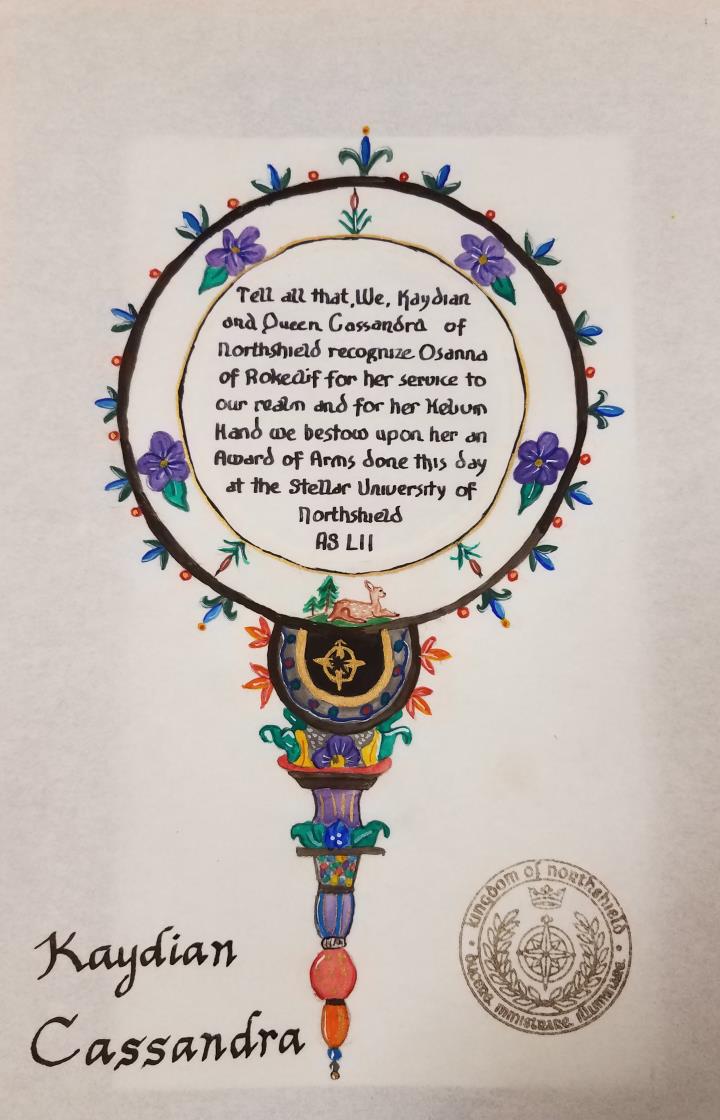 Tell all that, We, Kaydian
and Queen Cassandra of
Northshield recognize Osanna
of Rokeclif for her service to
our realm and for her Helium
Hand we bestow upon her an
Award of Arms done this day
at the Stellar University of
Northshield
AS LII
Kaydian
Cassandra
kingdom of northshield
ducere ministrare illuminare